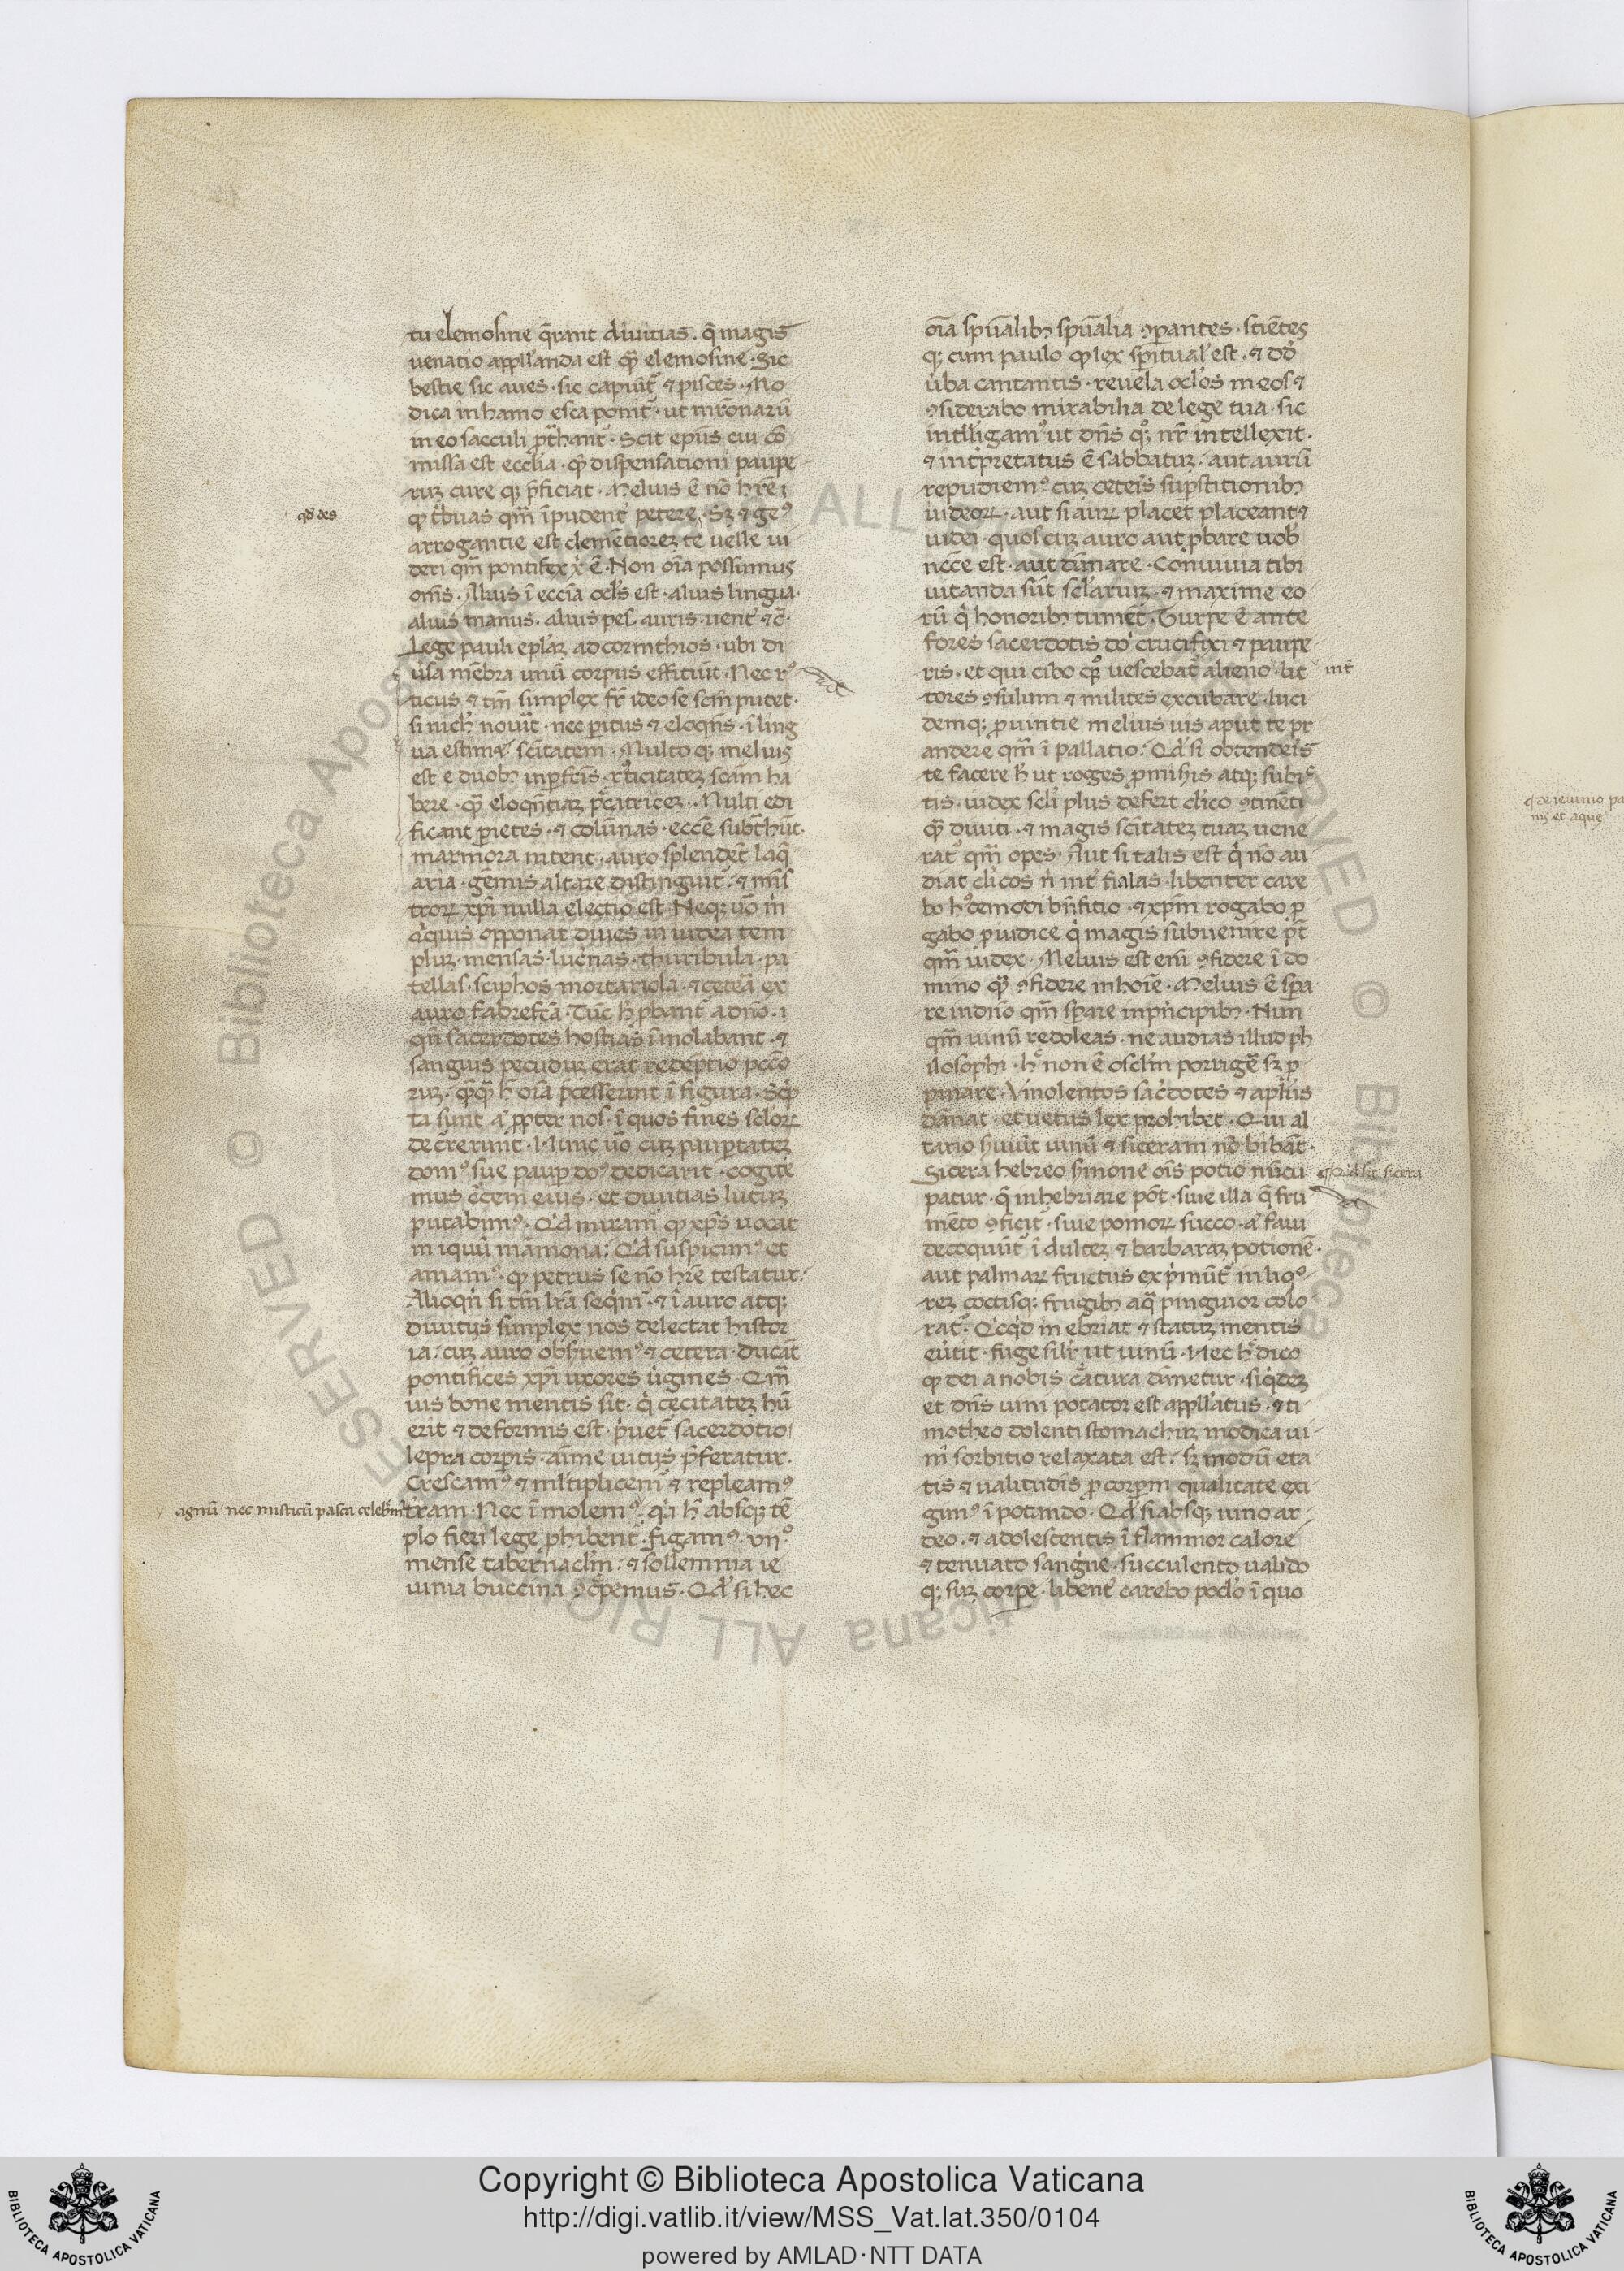 tu elemosine q̄rant diuitias . q̄ magis
uenatio appll'anda est qꝫ̄ elemosine . Sic
bestie sic aues . sic capiūt᷑ ⁊ pisces . Mo
dica in hamo esca ponit᷑ . ut mr̄onarū
in eo sacculi ꝓt̄hant᷑ . Scit ep̄us cui cō
missa est eccl'ia . quē dispensationi paupe
qd des
arrogantie est clementiorem te uelle ui
deri qm̄ pontifex x̄ ē . Non oīa possumus
om̄s . Alius ī eccīa ocl's est . alius lingua .
alius manus . alius pes . auris . uent᷑ ⁊c̄ .
Lege pauli epl'aꝫ ad corinthios . ubi di
ūsa mēbra unū corpus efficiūt . Nec rꝰ
ticus ⁊ tm̄ simplex fr̄ ideo se scm̄ putet .
si nich' nouīt . nec ꝑitus ⁊ eloqn̄s . ī ling
ua estimet᷑ scītatem . Multo qꝫ melius
bere . qꝫ̄ eloqn̄tiaꝫ pc̄catriceꝫ . Multi edi
ficant ꝑietes . ⁊ colūnas . eccē subt̄hūt .
marmora nitent . auro splendēt laq̄
aria . gēmis altare distinguit᷑ . ⁊ mīs
troꝝ xp̄i nulla electio est . Neqꝫ ūo m̄
aq̇uis opponat diues in iudea tem
pluꝫ . mensas . lucīnas . thuribula . pa
tellas . sciphos mortariola . ⁊ ceteā ex
auro fabrefc̄ā . Tūc h̄ ꝓbant᷑ a dn̄o . ī
qn̄ sacerdotes hostias īmolabant . ⁊
sanguis pecuduꝫ erat redēptio pccō
ruꝫ . qꝫ̄qꝫ̄ h̄ oīa p̄cesserint ī figura . Scp̄
ta sunt aū ꝓpter nos . ī quos fines sclōꝝ
decr̄erunt . Nunc ūo cuꝫ pauꝑtateꝫ
domꝰ sue paupꝑ dōs dedicarit . cogite
mus c̄cem eius . et diuitias lutuꝫ
putabimꝰ . Qd' miram᷑ ꝙ xp̄s uocat
iniquū mamona : Qd' suspicimꝰ et
amamꝰ . ꝙ petrus se nō hr̄e testatur .
Alioqn̄ si tm̄ lr̄ā seq̇m᷑ . ⁊ ī auro atqꝫ
diuitijs simplex nos delectat histor
ia : cuꝫ auro obsuemꝰ ⁊ cetera . ducāt
pontifices xp̄i uxores ūgines . Qm̄
uis bone mentis sit . q̇ cecitateꝫ hū
erit ⁊ deformis est . p̄uet᷑ sacerdotio
lepra corꝑis . aīme uitijs p̄feratur .
Crescamꝰ ⁊ ml'tiplicem᷑ ⁊ repleamꝰ
agnū nec misticū pasca celeb̄m᷑
t̄ram . Nec īmolemꝰ . q̇a h̄ absqꝫ tē
plo fieri lege ꝓhibent᷑ . figamꝰ . vīīº
mense tabernaclm̄ : ⁊ sollemnia ie
iunia buccina ꝯcr̄epemus . Qd' si hec
oīa spūalibꝫ spūalia ꝯꝑantes . sciētes
qꝫ cum paulo ꝙ lex spiritual' est . ⁊ dd̄
ūba cantantis . reuela ocl'os meos ⁊
ꝯsiderabo mirabilia de lege tua . sic
intlligamꝰ ut dn̄s qꝫ nr̄ intellexit .
⁊ int̄pretatus ē sabbatuꝫ . aut aurū
repudiemꝰ cuꝫ ceteīs suꝑstitionibꝫ
iudeoꝝ . aut si auꝝ placet placeant ⁊
iudei . quos cuꝫ auro aut ꝓbare nob'
nc̄ce est . aut dānare . Conuiuia tibi
uitanda sūt scl'ariuꝫ . ⁊ maxime eo
rū q̇ honoribꝫ tumēt . Turpe ē ante
fores sacerdotis dō crucifixi ⁊ paupe
ris . et qui cibo qꝫ uescebat᷑ alieno . lic
int᷑
tores ꝯsulum ⁊ milites excubare . iudi
cemqꝫ ꝓuintie melius uis aput te pr
andere qm̄ ī pallatio : Qd' si obtendeīs
te facere h̄ ut roges ꝓ mis̄is atqꝫ subiec
tis . iudex scl'i plus defert cl'ico ꝯtinēti
qꝫ̄ diuiti . ⁊ magis scītateꝫ tuaꝫ uene
rat᷑ qm̄ opes . Aut si talis est q̇ nō au
diat cl'icos n̄ int᷑ fialas . libenter care
bo hꝰcemodi bn̄fitio . ⁊ xp̄m rogabo ꝓ
gabo ꝓ iudice q̇ magis subuenire pōt
qm̄ iudex . Melius est enī ꝯfidere ī do
mino qꝫ̄ ꝯfidere in hoīe . Melius ē spa
re in dn̄o qm̄ spare in pn̄cipibꝫ . Nun
qm̄ uinū redoleas . ne audias illud ph
ilosophi . h̄ non ē osclm̄ porrige sꝫ ꝓ
pinare . Vinolentos sac̄dotes ⁊ apl'us
dānat . et uetus lex prohibet . Qui al
tario s̄uiūt uinū ⁊ siceram nō bibāt .
Sicera hebreo s̄mone oīs potio nūcu
Qd sit sicera
patur . q̄ inhebriare pōt . siue illa q̄ fru
mēto ꝯficit᷑ . siue pomoꝝ succo . aū faui
decoquūt᷑ ī dulceꝫ ⁊ barbaraꝫ potionē .
aut palmaꝝ fructus exp̄mūt᷑ in liqꝰ
reꝫ coctisqꝫ frugibꝫ aq̄ pinguior colo
rat᷑ . Qc̄qd inebriat ⁊ statuꝫ mentis
eūtit . fuge silr̄ ut uinū . Nec h̄ dico
ꝙ dei a nobis c̄atura dānetur . siq̇deꝫ
et dn̄s uini potator est appll'atus . ⁊ ti
motheo dolenti stomachuꝫ modica ui
nī sorbitio relaxata est . sꝫ modū eta
tis ⁊ ualitudīs ꝓ corꝑm qualitate exi
gimꝰ ī potando . Qd' si absqꝫ uino ar
deo . ⁊ adolescentis ī flammor calore
⁊ tenuato sangīne . succulento ualido
qꝫ suꝫ corpe . libent᷑ carebo pocl'o ī quo
de ieiunio pa
nis et aque
Copyright © Biblioteca Apostolica Vaticana
http://digi.vatlib.it/view/MSS_Vat.lat.350/0104
powered by AMLAD·NTT DATA
BIBLIOTECA APOSTOLICA VATICANA
BIBLIOTECA APOSTOLICA VATICANA